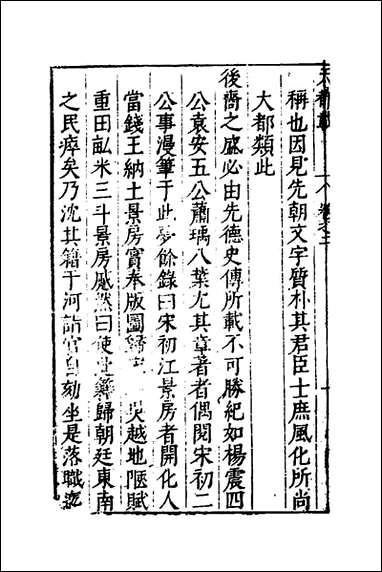 稱也因見先朝文字質朴其君臣士庶風化所尚
大都類此
後裔之盛必由先德史傳所載不可勝紀如楊震四
公袁安五公蕭瑀八葉尤其章著者偶閱宋初二
公事漫筆于此夢餘錄曰宋初江景房者開化人
當錢王納土景房實奉版圖歸 吳越地陿賦
重田畝米三斗景房慼然曰使 歸朝廷東南
之民瘁矣乃沈其籍于河詣官自劾坐是落職迄